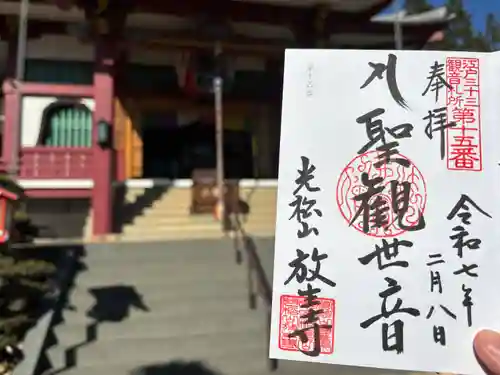 奉拝
江戸三十三
観音札所第十五番
聖観世音
令和七年
二月八日
光松山
放生寺